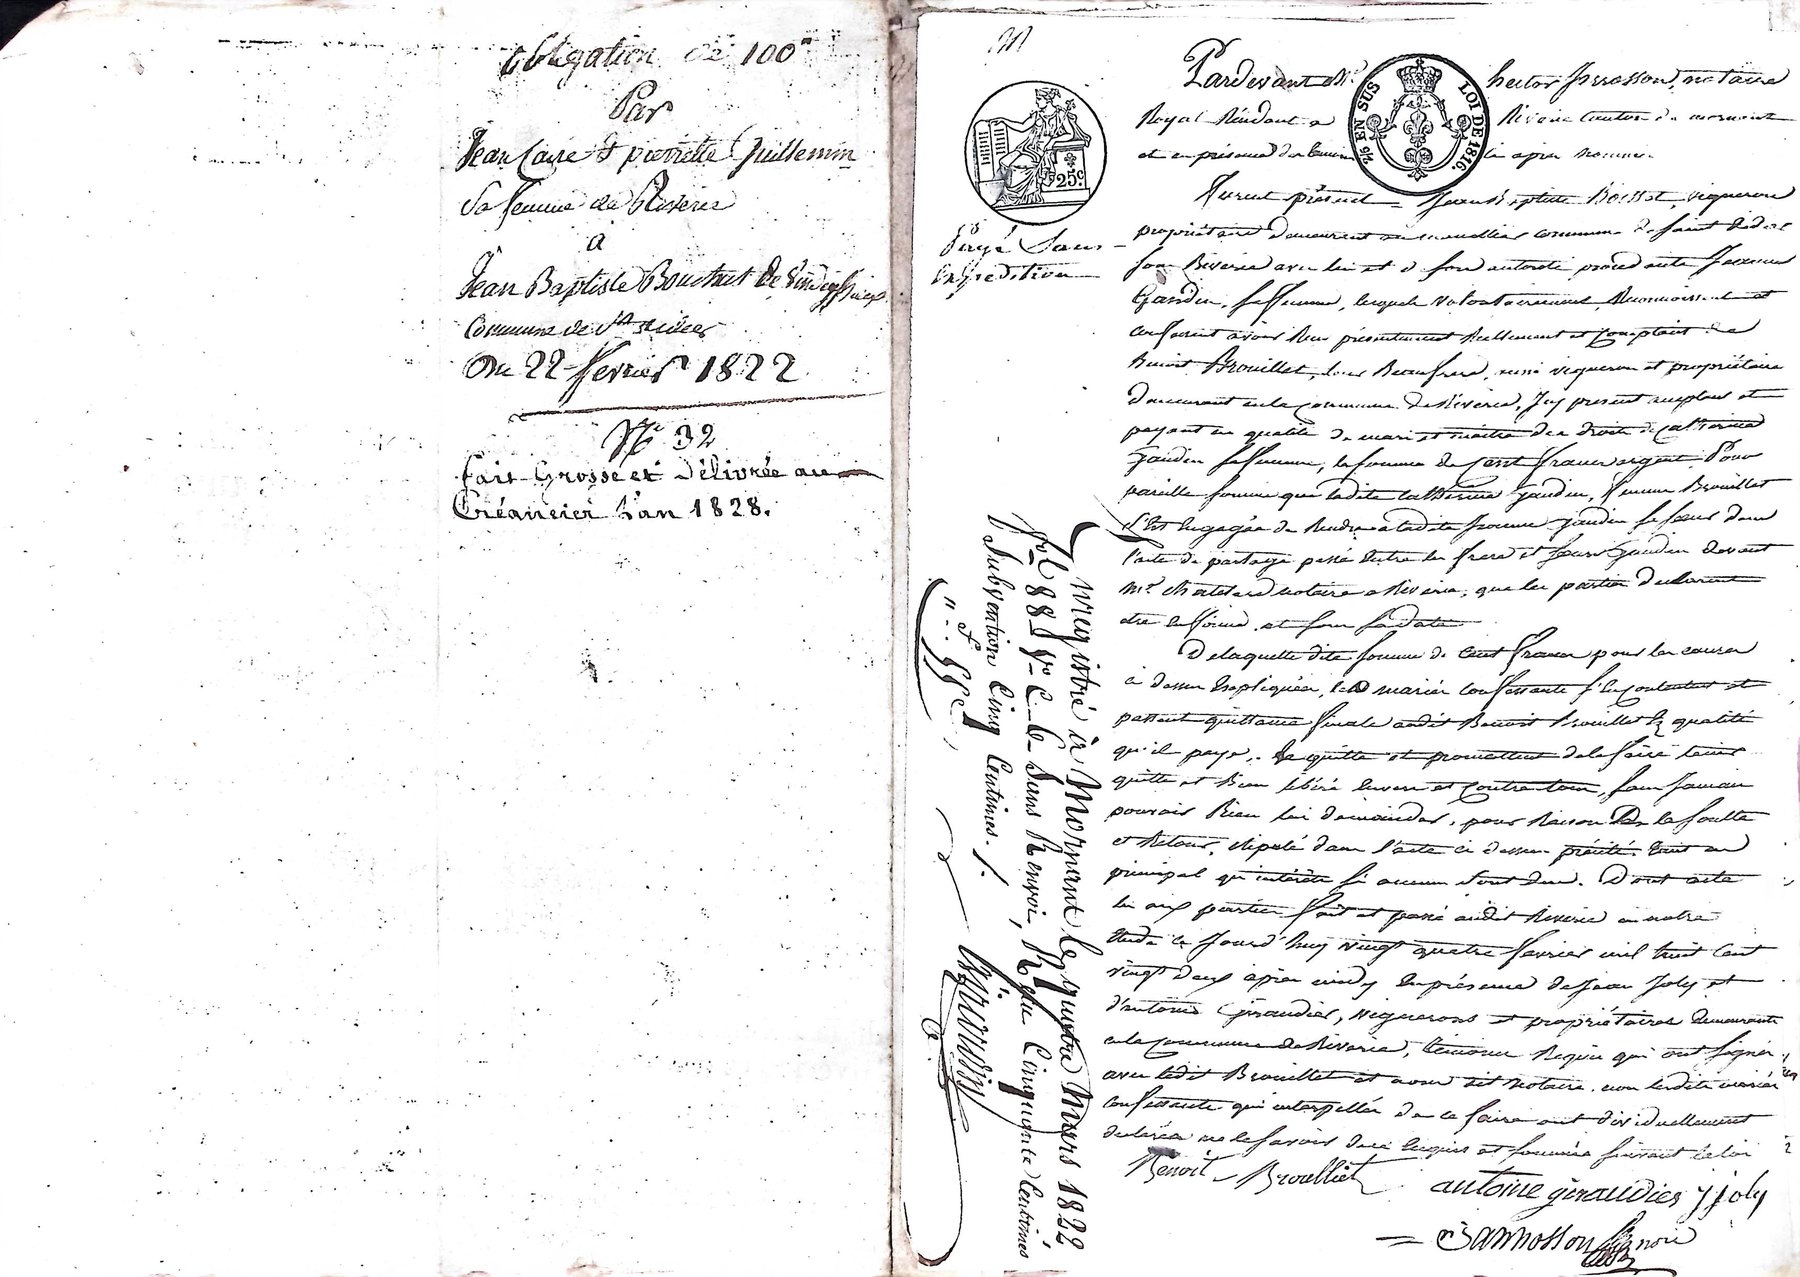 Obligation de 100
Par
Jean Caire & pierrette Guillemin
Sa femme de Riverie
a
Jean Baptiste Bouchut de
Commune de St
Du 22 fevrier 1822
N° 32
fait Grosse et Délivrée au
Créancier L'an 1828.
25c
9/4 EN SUS LOI DE 1816.
Payé Sans
Expedition
Pardevant Me hector notaire
Royal Résidant a Riverie Canton de mornant
et en présence des temoins ci apres nommés
furent présent Jean Baptiste vigneron
propriétaire demeurant au commune de saint Didier
sous Riverie avec lui et d son autorité procedante Jeanne
Gaudin, sa femme, lesquels volontairement Reconnoissent et
confessent avoir Reçu présentement Reellement et comptant de
Benoit Brouillet, leur Beaufrere, aussi vigneron et propriétaire
demeurant en la commune de Riverie, Icy present acceptant et
payant en qualité de mari et maitre des droits de Catherine
Gaudin sa femme, la somme de Cent francs argent Pour
pareille somme que ladite Catherine Gaudin, femme Brouillet
s'est engagée de Rendre a ladite Jeanne Gaudin sa sœur dans
l'acte de partage passé entre les frere et sœurs Gaudin devant
Me Chatelard notaire a Riverie, que les parties declarent
etre en forme et sous sa date
De laquelle dite somme de Cent francs pour les causes
ci dessus Expliquées, les mariés confessants s'en contentent et
passent quittance finale audit Benoit Brouillet En qualité
qu'il paye, le quitte et promettent de le faire tenir
quitte et Bien libéré envers et contre tous, sans Jamais
pouvoir Rien lui demander, pour Raison De la soulte
et Retour, stipulé dans l'acte ci dessus précité tant en
principal qu'intérêts si aucuns sont dus. Dont acte
lu aux parties fait et passé audit Riverie en notre
Etude ce Jourd'huy vingt quatre fevrier mil huit Cent
vingt deux après midy En présence de Jean Joly et
d'antoine Giraudier, vignerons et propriétaires demeurants
en la commune de Riverie, temoins Requis qui ont signés
avec ledit Brouillet et nous dit notaire non lesdits mariés
confessants qui interpellés de ce faire ont dividuellement
declarés ne le savoir de ce Enquis et sommés suivant la loi
Benoit Brouilliet antoine giraudier J joly
Enregistré à Mornant le quatre Mars 1822
f° 88 V° C 6 Sans Renvoi, Reçu Cinquante Centimes
Subvention Cinq Centimes.